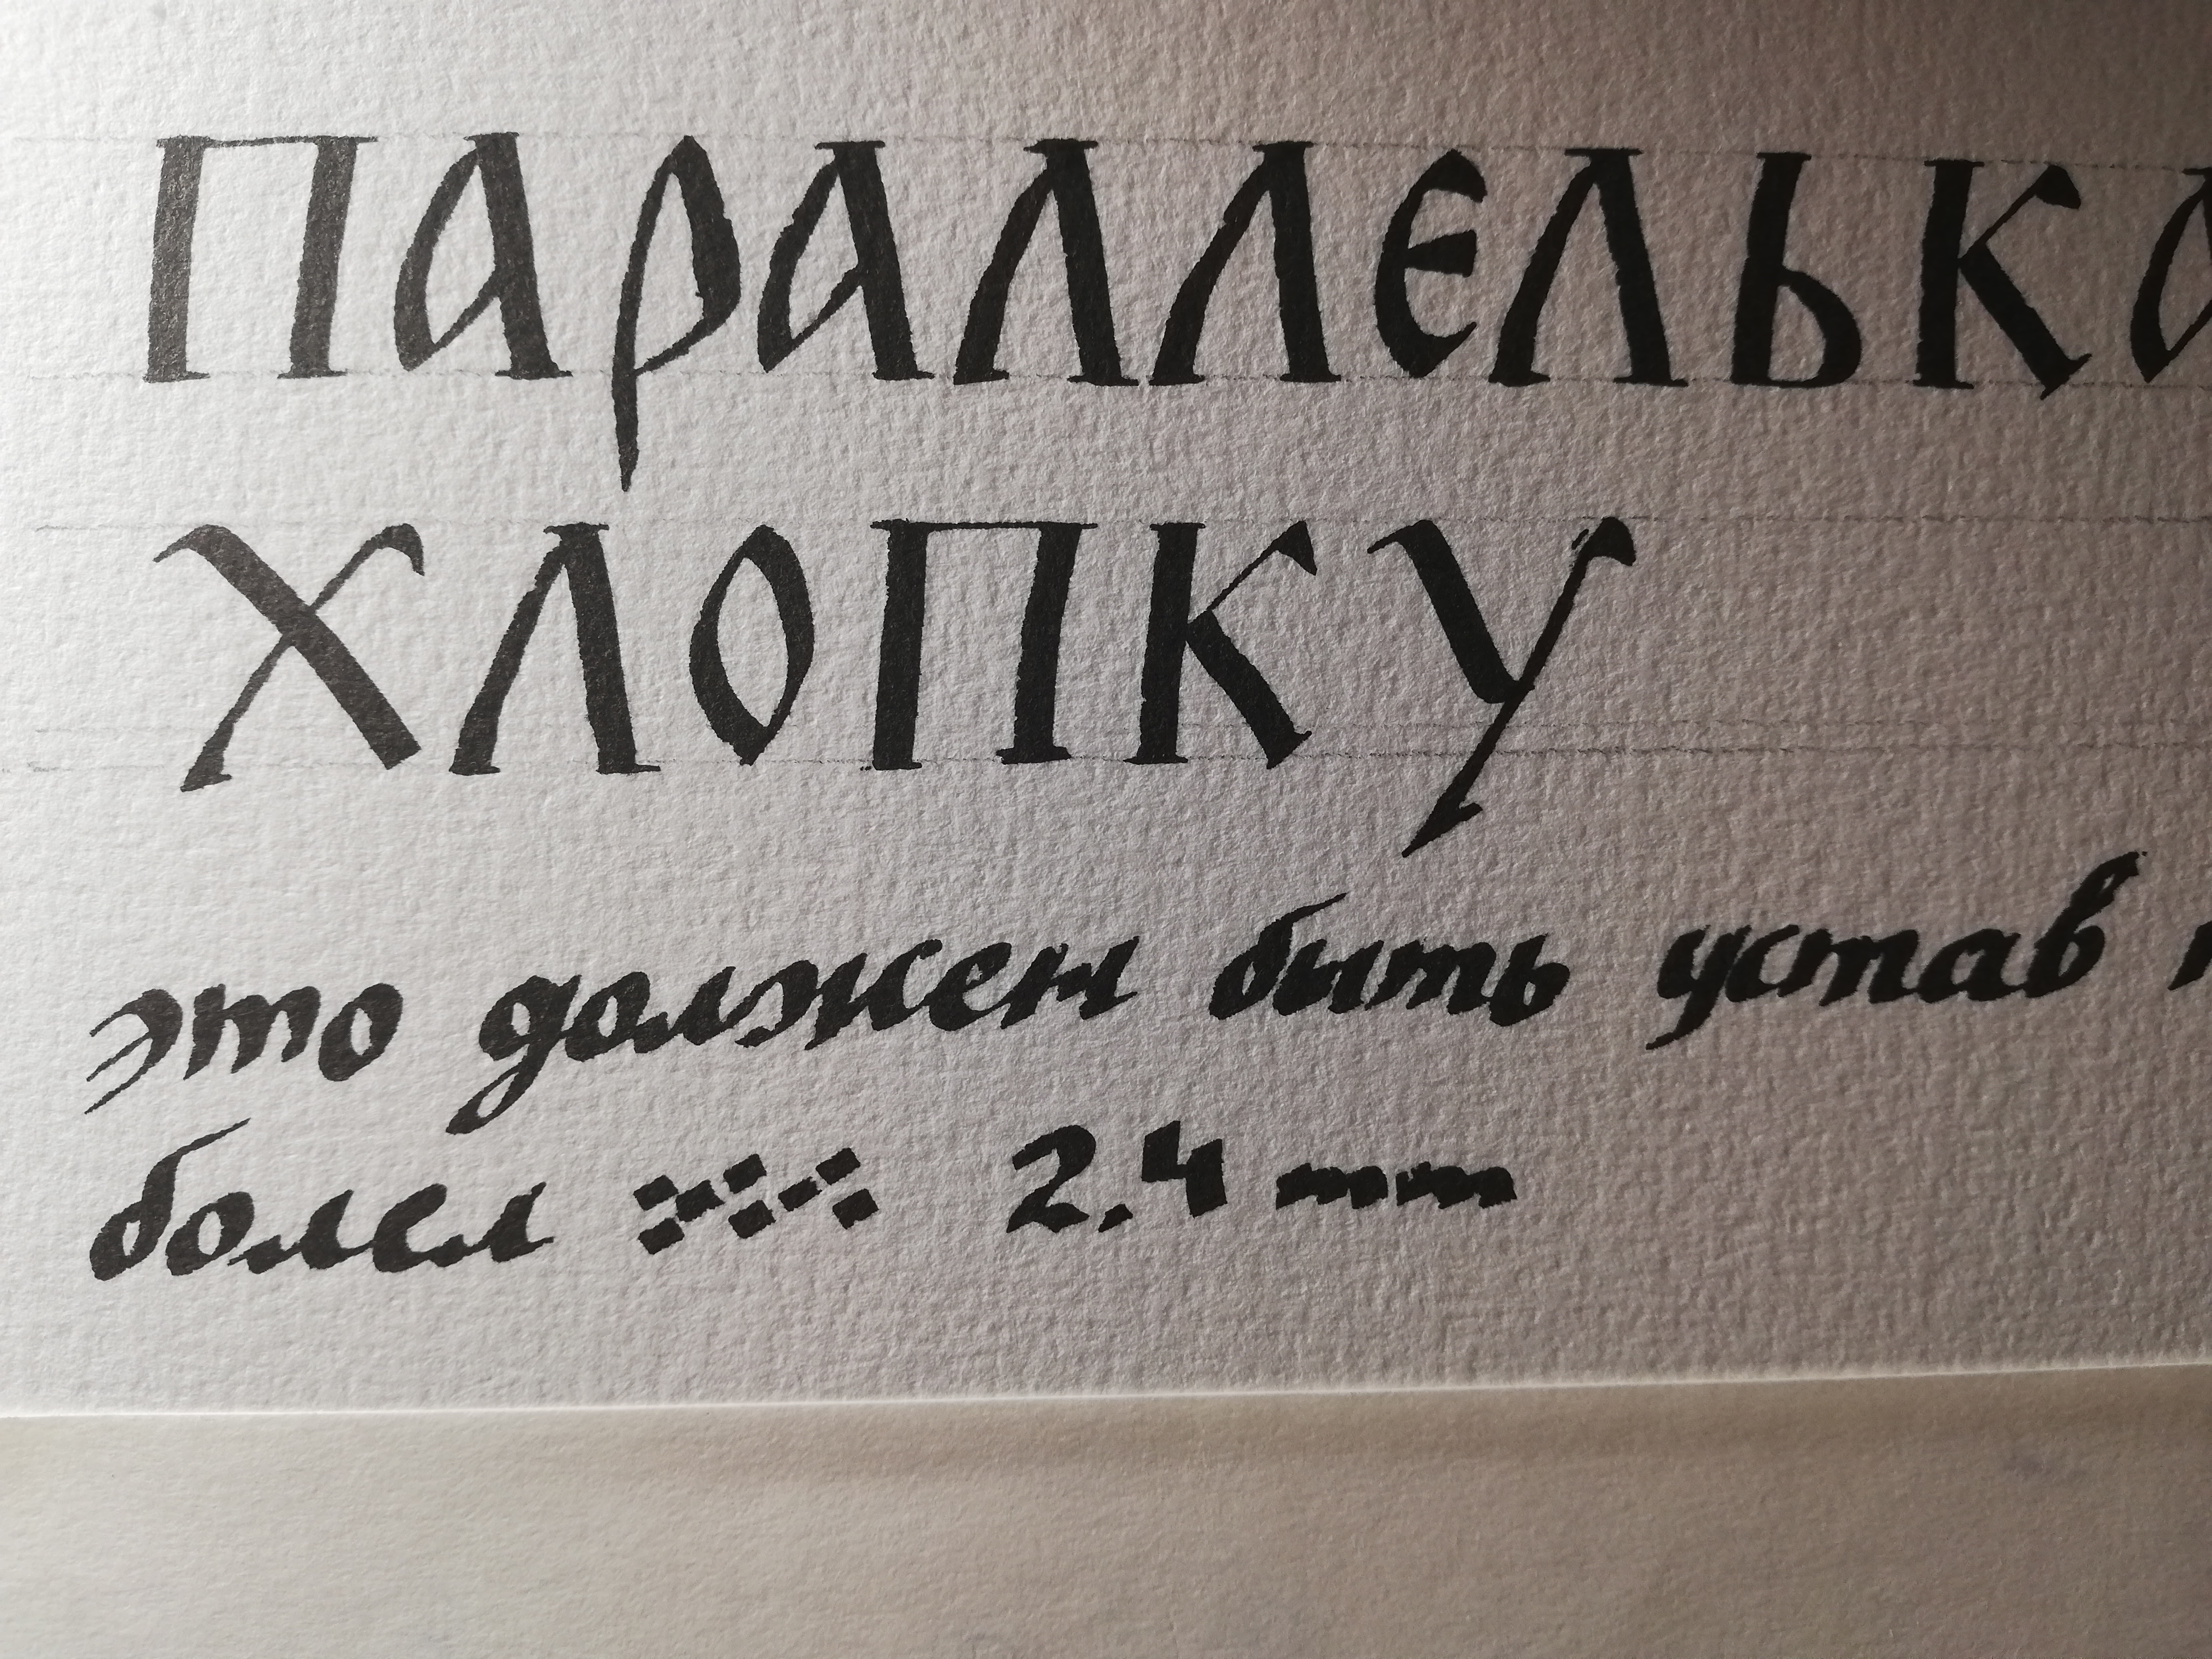 ПАРАЛЛЕЛЬКА
ХЛОПКУ
это должен быть устав
болел 2.4 mm